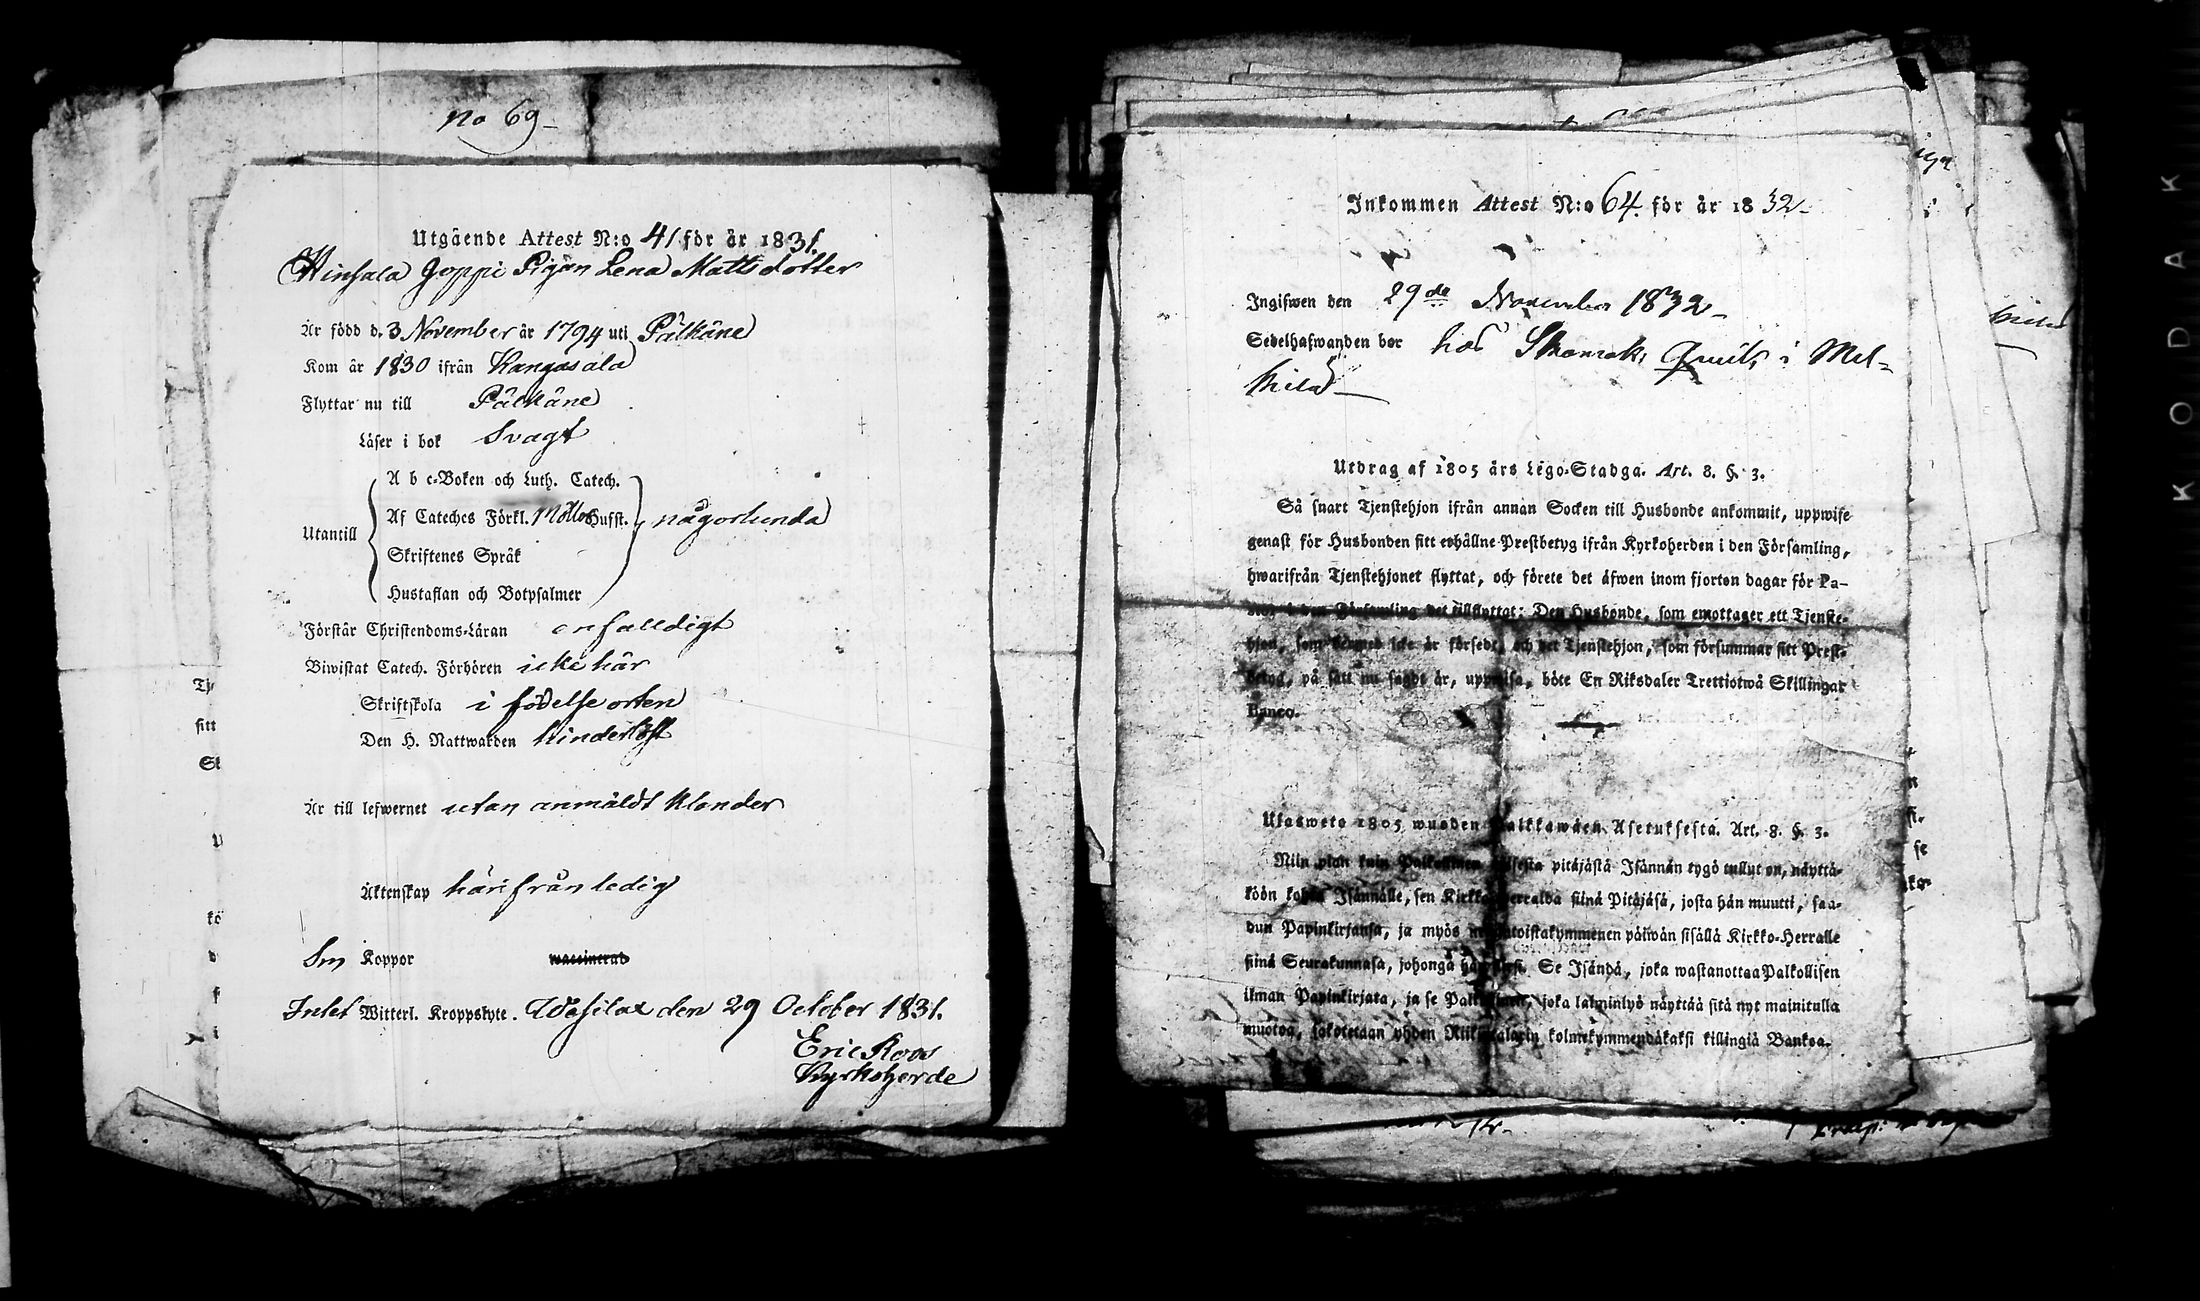 No 69
Utgående Attest N:o 41 för år 1831.
Hinsala Joppi Pigan Lena Mattsdotter
Är född d. 3 November år 1794 uti Pälkäne
Kom år 1830 ifrån Kangasala
Flyttar nu till Pälkäne
Läser i bok Svagt
A b c-Boken och Luth. Catech.
Af Cateches Förkl. Hufst.
Utantill någorlunda
Skriftenes Språk
Hustaflan och Botpsalmer
Förstår Christendoms-Läran enfalldigt
Biwistat Catech. Förhören icke här
Skriftskola i födelse orten
Den H. Nattwarden
Är till lefwernet utan anmäldt klander
Äktenskap härifrån ledig
Sm Koppor
Intet Witterl. Kroppslyte. den 29 October 1831.
Eric Roos
Kyrkoherde
Inkommen Attest N:o 64. för år 1832
Ingifwen den 29de November 1832
Sedelhafwanden bor hos i Mel-
kila
Utdrag af 1805 års Lego-Stadga. Art. 8. §. 3.
Så snart Tjenstehjon ifrån annan Socken till Husbonde ankommit, uppwise
genast för Husbonden sitt erhållne Prestbetyg ifrån Kyrkoherden i den Församling,
hwarifrån Tjenstehjonet flyttat, och förete det äfwen inom fjorton dagar för Pa-
Församling det tillflyttat: Den Husbonde, som emottager ett Tjenste-
hjon, som icke är försedt, och det Tjenstehjon, som försummar sitt Prest-
betyg, på sätt nu sagdt är, uppwisa, böte En Riksdaler Trettiotwå Skillingar
Banco.
Ulosweto 1805 wuoden Palkkawäen Asetuksesta. Art. 8. §. 3.
Niin pian kuin Palkollinen toisesta pitäjästä Isännän tygö tullut on, näyttä-
köön kohta Isännälle, sen Kirkko-Herralda siinä Pitäjäsä, josta hän muutti, saa-
dun Papinkirjansa, ja myös päiwän sisällä Kirkko-Herralle
siinä Seurakunnasa, johonga Se Isändä, joka wastanottaa Palkollisen
ilman Papinkirjata, ja se joka laiminlyö näyttää sitä nyt mainitulla
muotoa, sakotetaan yhden Riikintalarin kolmekymmendäkaksi killingiä Bankoa.
KODAK